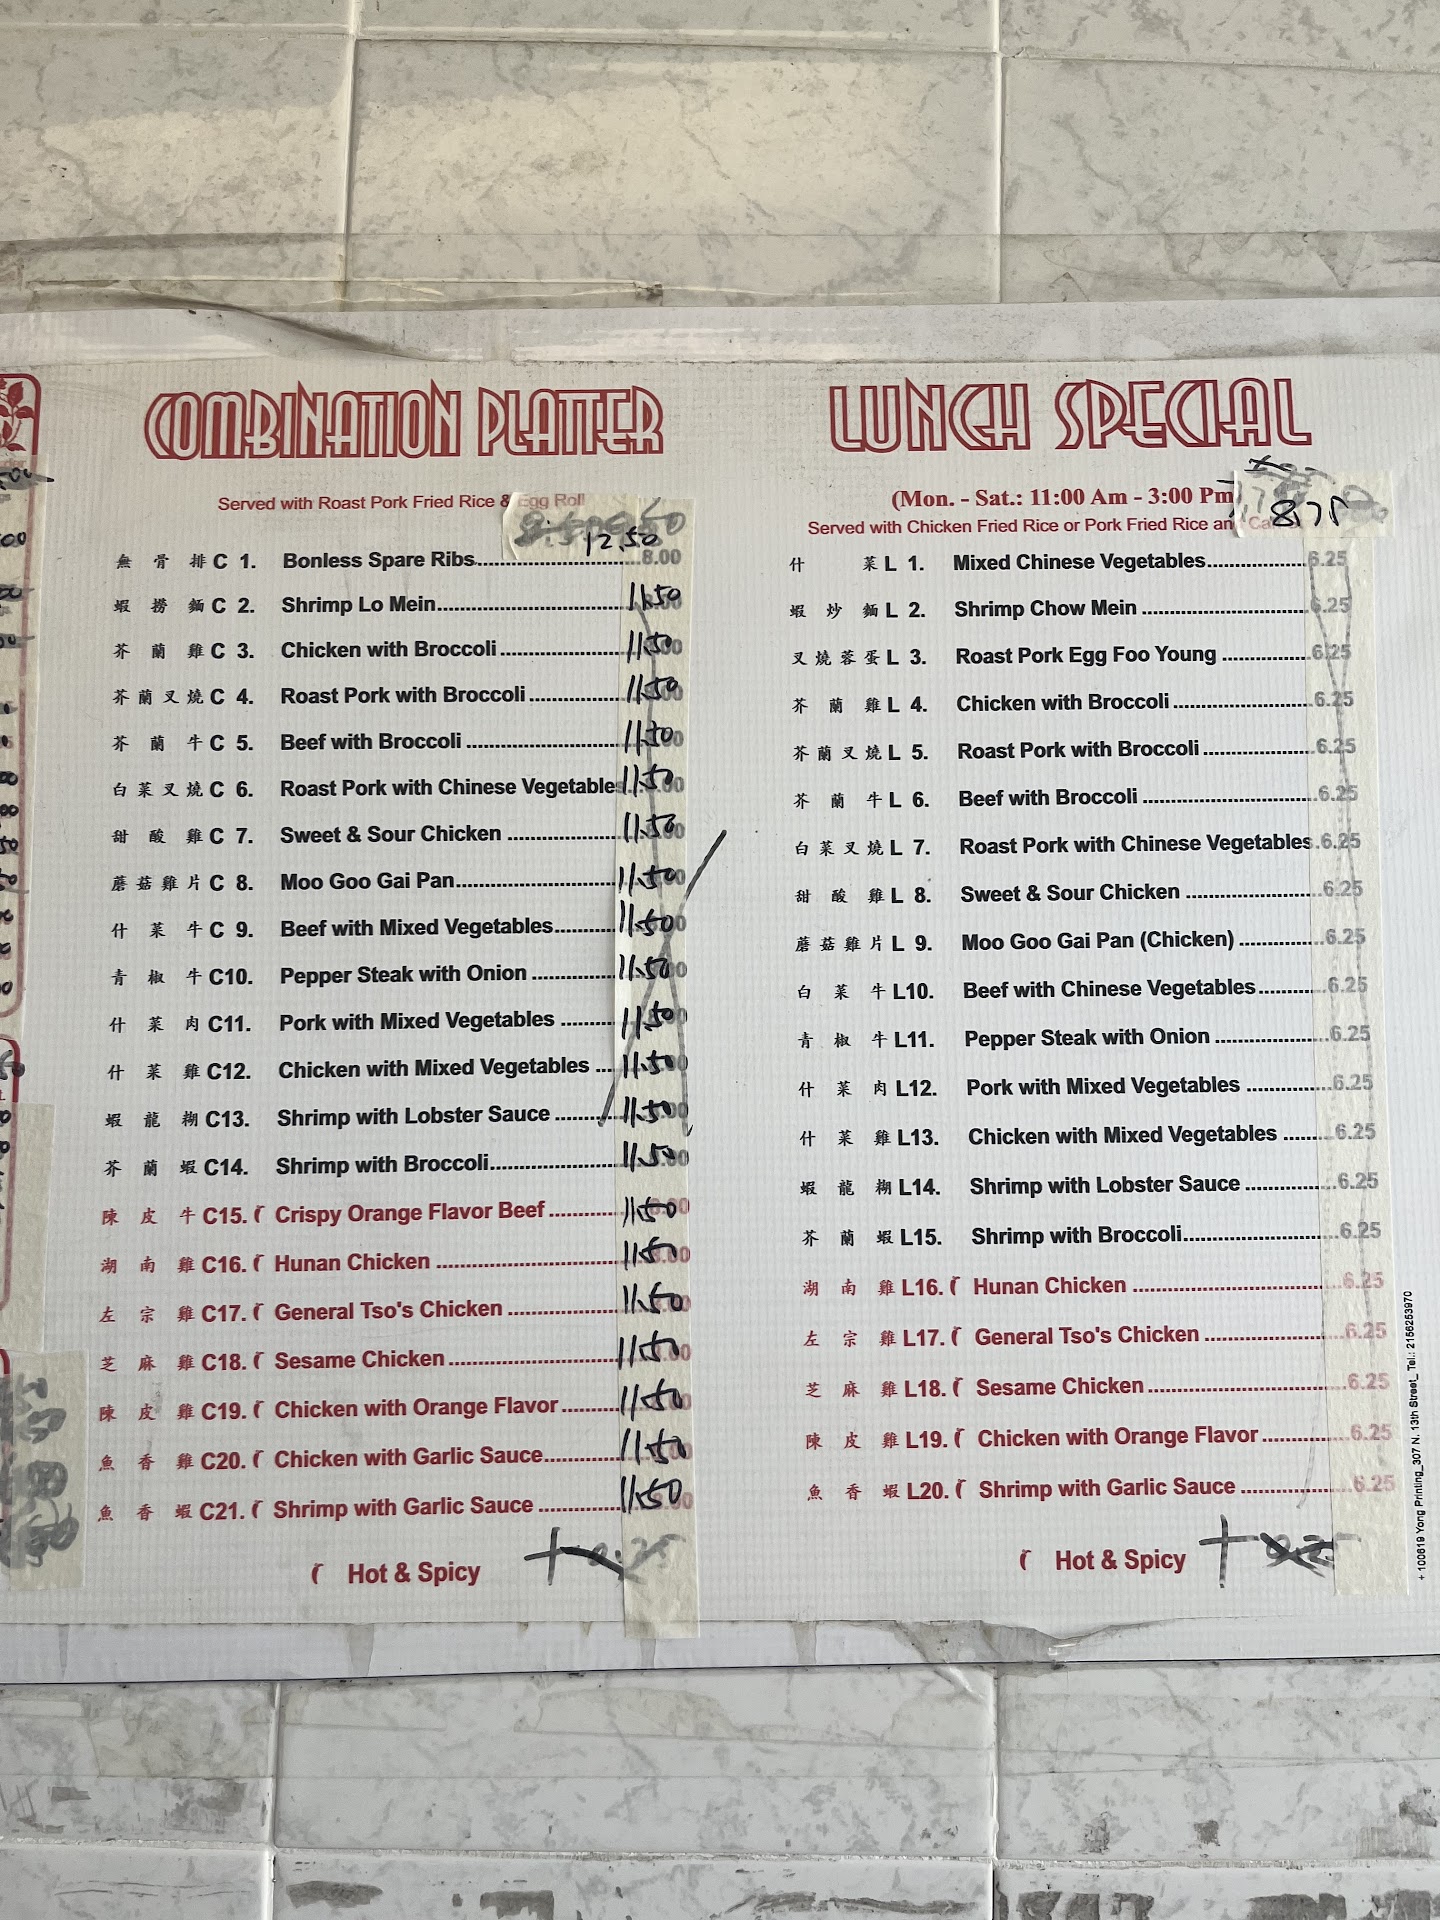 COMBINATION PLATTER
Served with Roast Pork Fried Rice & Egg Roll
12.50
無骨排 C 1. Bonless Spare Ribs 8.00
蝦撈麵 C 2. Shrimp Lo Mein 11.50
芥蘭雞 C 3. Chicken with Broccoli 11.50
芥蘭叉燒 C 4. Roast Pork with Broccoli 11.50
芥蘭牛 C 5. Beef with Broccoli 11.50
白菜叉燒 C 6. Roast Pork with Chinese Vegetables 11.50
甜酸雞 C 7. Sweet & Sour Chicken 11.50
蘑菇雞片 C 8. Moo Goo Gai Pan 11.50
什菜牛 C 9. Beef with Mixed Vegetables 11.50
青椒牛 C10. Pepper Steak with Onion 11.50
什菜肉 C11. Pork with Mixed Vegetables 11.50
什菜雞 C12. Chicken with Mixed Vegetables 11.50
蝦龍糊 C13. Shrimp with Lobster Sauce 11.50
芥蘭蝦 C14. Shrimp with Broccoli 11.50
陳皮牛 C15. Crispy Orange Flavor Beef 11.50
湖南雞 C16. Hunan Chicken 11.50
左宗雞 C17. General Tso's Chicken 11.50
芝麻雞 C18. Sesame Chicken 11.50
陳皮雞 C19. Chicken with Orange Flavor 11.50
魚香雞 C20. Chicken with Garlic Sauce 11.50
魚香蝦 C21. Shrimp with Garlic Sauce 11.50
Hot & Spicy + 0.25
LUNCH SPECIAL
(Mon. - Sat.: 11:00 Am - 3:00 Pm
8.75
Served with Chicken Fried Rice or Pork Fried Rice and
什菜 L 1. Mixed Chinese Vegetables 6.25
蝦炒麵 L 2. Shrimp Chow Mein 6.25
叉燒蓉蛋 L 3. Roast Pork Egg Foo Young 6.25
芥蘭雞 L 4. Chicken with Broccoli 6.25
芥蘭叉燒 L 5. Roast Pork with Broccoli 6.25
芥蘭牛 L 6. Beef with Broccoli 6.25
白菜叉燒 L 7. Roast Pork with Chinese Vegetables 6.25
甜酸雞 L 8. Sweet & Sour Chicken 6.25
蘑菇雞片 L 9. Moo Goo Gai Pan (Chicken) 6.25
白菜牛 L10. Beef with Chinese Vegetables 6.25
青椒牛 L11. Pepper Steak with Onion 6.25
什菜肉 L12. Pork with Mixed Vegetables 6.25
什菜雞 L13. Chicken with Mixed Vegetables 6.25
蝦龍糊 L14. Shrimp with Lobster Sauce 6.25
芥蘭蝦 L15. Shrimp with Broccoli 6.25
湖南雞 L16. Hunan Chicken 6.25
左宗雞 L17. General Tso's Chicken 6.25
芝麻雞 L18. Sesame Chicken 6.25
陳皮雞 L19. Chicken with Orange Flavor 6.25
魚香蝦 L20. Shrimp with Garlic Sauce 6.25
Hot & Spicy + 0.25
+ 100619 Yong Printing_307 N. 13th Street_ Tel.: 2156253970